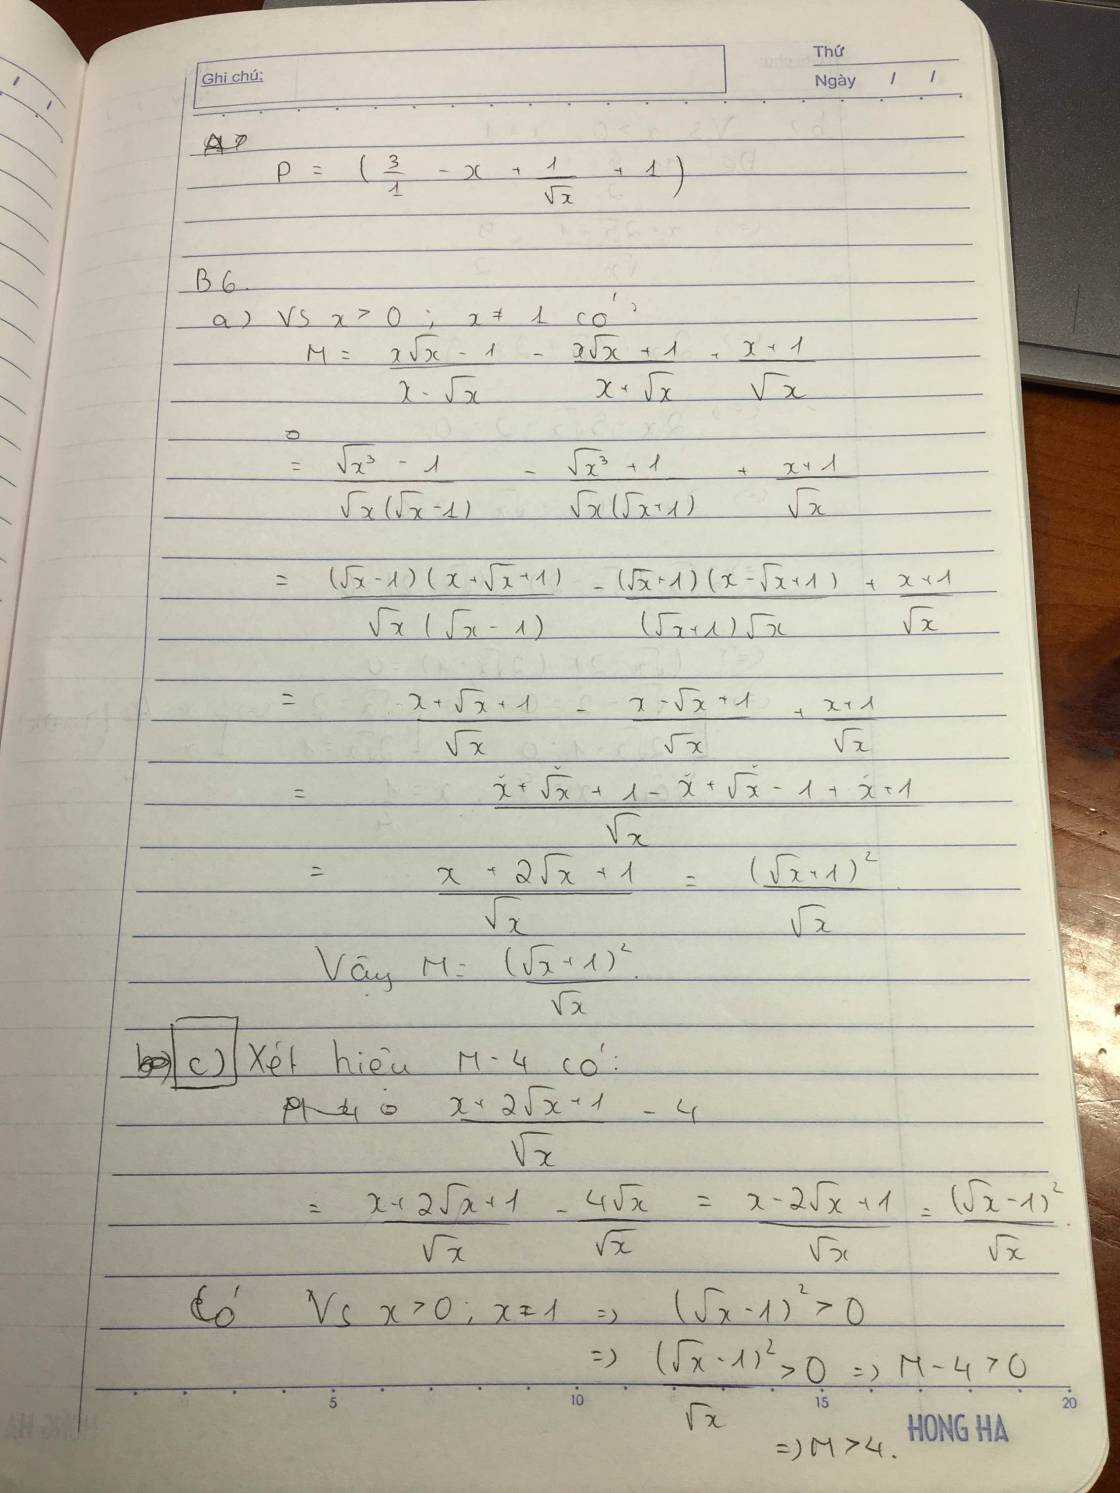 Ghi chú:
Thứ
Ngày / /
P = ( 3/1 - x + 1/√x + 1 )
B6.
a) Vs x > 0 ; x ≠ 1 có:
M = (x√x - 1)/(x - √x) - (x√x + 1)/(x + √x) + (x + 1)/√x
= (√x³ - 1)/(√x(√x - 1)) - (√x³ + 1)/(√x(√x + 1)) + (x + 1)/√x
= (√x - 1)(x + √x + 1)/(√x(√x - 1)) - (√x + 1)(x - √x + 1)/((√x + 1)√x) + (x + 1)/√x
= (x + √x + 1)/√x - (x - √x + 1)/√x + (x + 1)/√x
= (x + √x + 1 - x + √x - 1 + x + 1)/√x
= (x + 2√x + 1)/√x = (√x + 1)²/√x
Vậy M = (√x + 1)²/√x.
c) Xét hiệu M - 4 có:
(x + 2√x + 1)/√x - 4
= (x + 2√x + 1)/√x - 4√x/√x = (x - 2√x + 1)/√x = (√x - 1)²/√x.
Có Vs x > 0 ; x ≠ 1 => (√x - 1)² > 0
=> (√x - 1)²/√x > 0 => M - 4 > 0
5 10 15 20
HONG HA
=> M > 4.